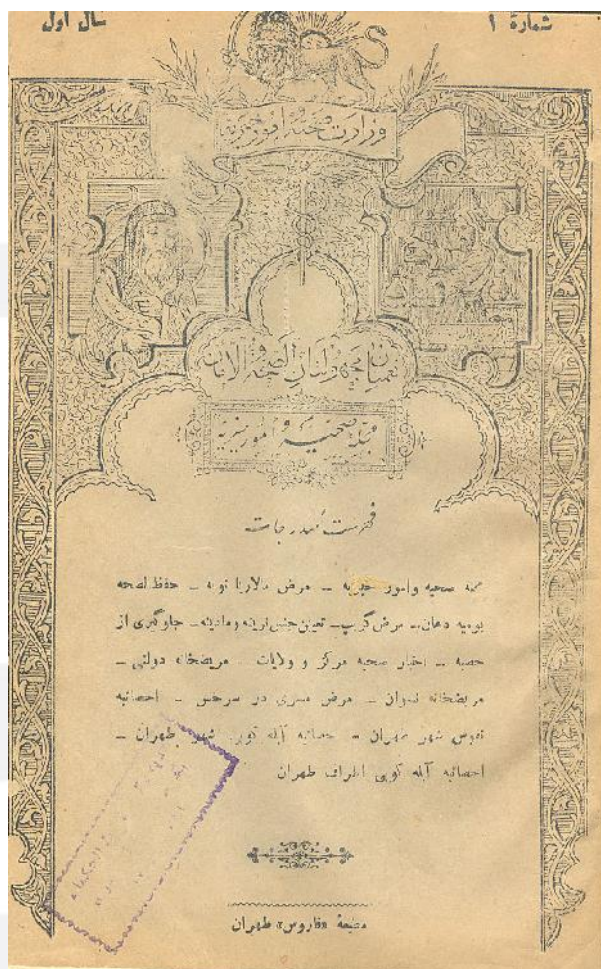 شمارهٔ ۱
سال اول
وزارت صحیه و امور خیریه
نعمتان مجهولتان الصحة و الامان
مجله صحیه و امور خیریه
فهرست مندرجات
صحیه وامور خیریه – مرض مالاریا نوبه – حفظ الصحه
یومیه دهان – مرض گریپ – تعیین جنس نرینه و مادینه – جلوگیری از
حصبه – اخبار صحیه مرکز و ولایات – مریضخانه دولتی –
مریضخانه نسوان – مرض مسری در سرخس – احصائیه
نفوس شهر طهران – احصائیه آبله کوبی شهر طهران –
احصائیه آبله کوبی اطراف طهران
مطبعهٔ «فاروس» طهران